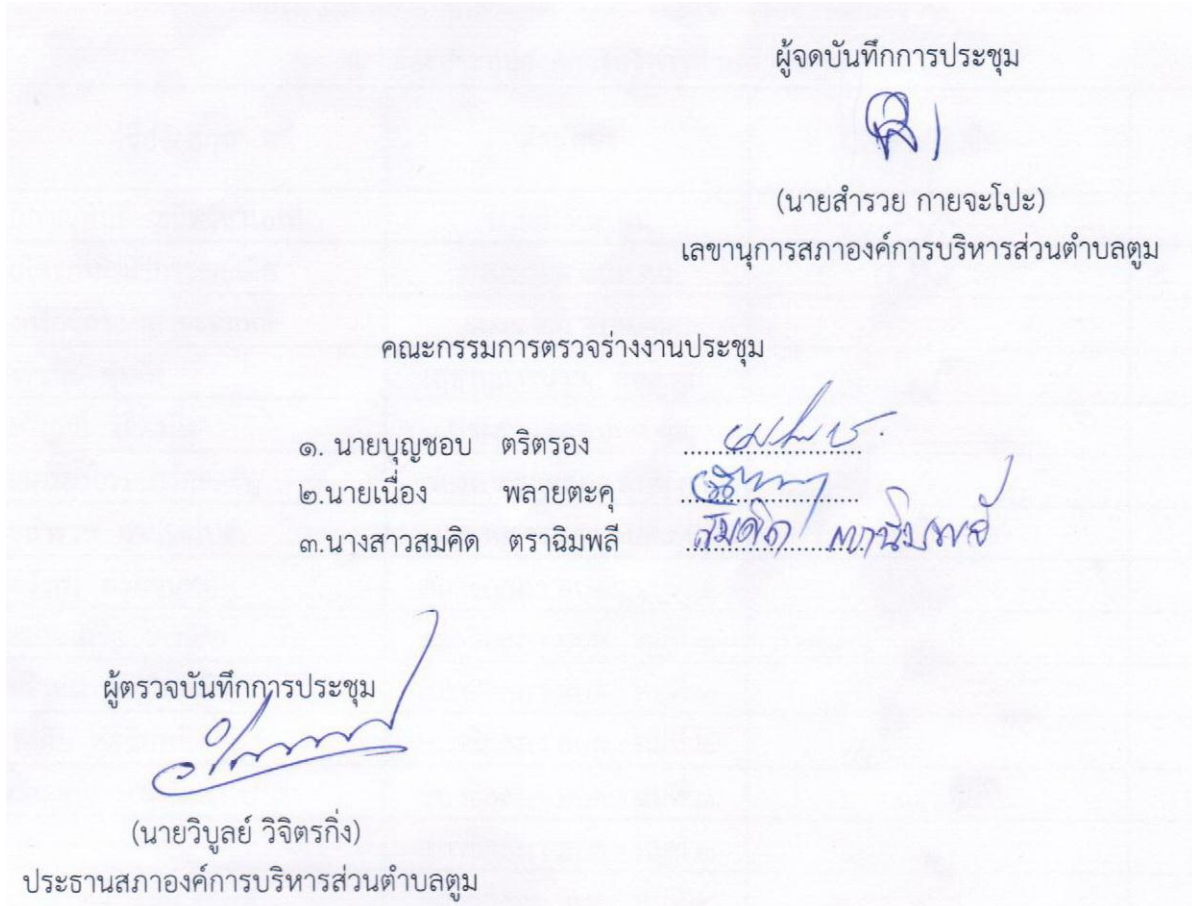 ผู้จดบันทึกการประชุม
(นายสำรวย กายจะโปะ)
เลขานุการสภาองค์การบริหารส่วนตำบลตูม
คณะกรรมการตรวจร่างงานประชุม
๑. นายบุญชอบ ตริตรอง ....................
๒.นายเนื่อง พลายตะคุ ....................
๓.นางสาวสมคิด ตราฉิมพลี .................... สมคิด ตราฉิมพลี
ผู้ตรวจบันทึกการประชุม
(นายวิบูลย์ วิจิตรกิ่ง)
ประธานสภาองค์การบริหารส่วนตำบลตูม